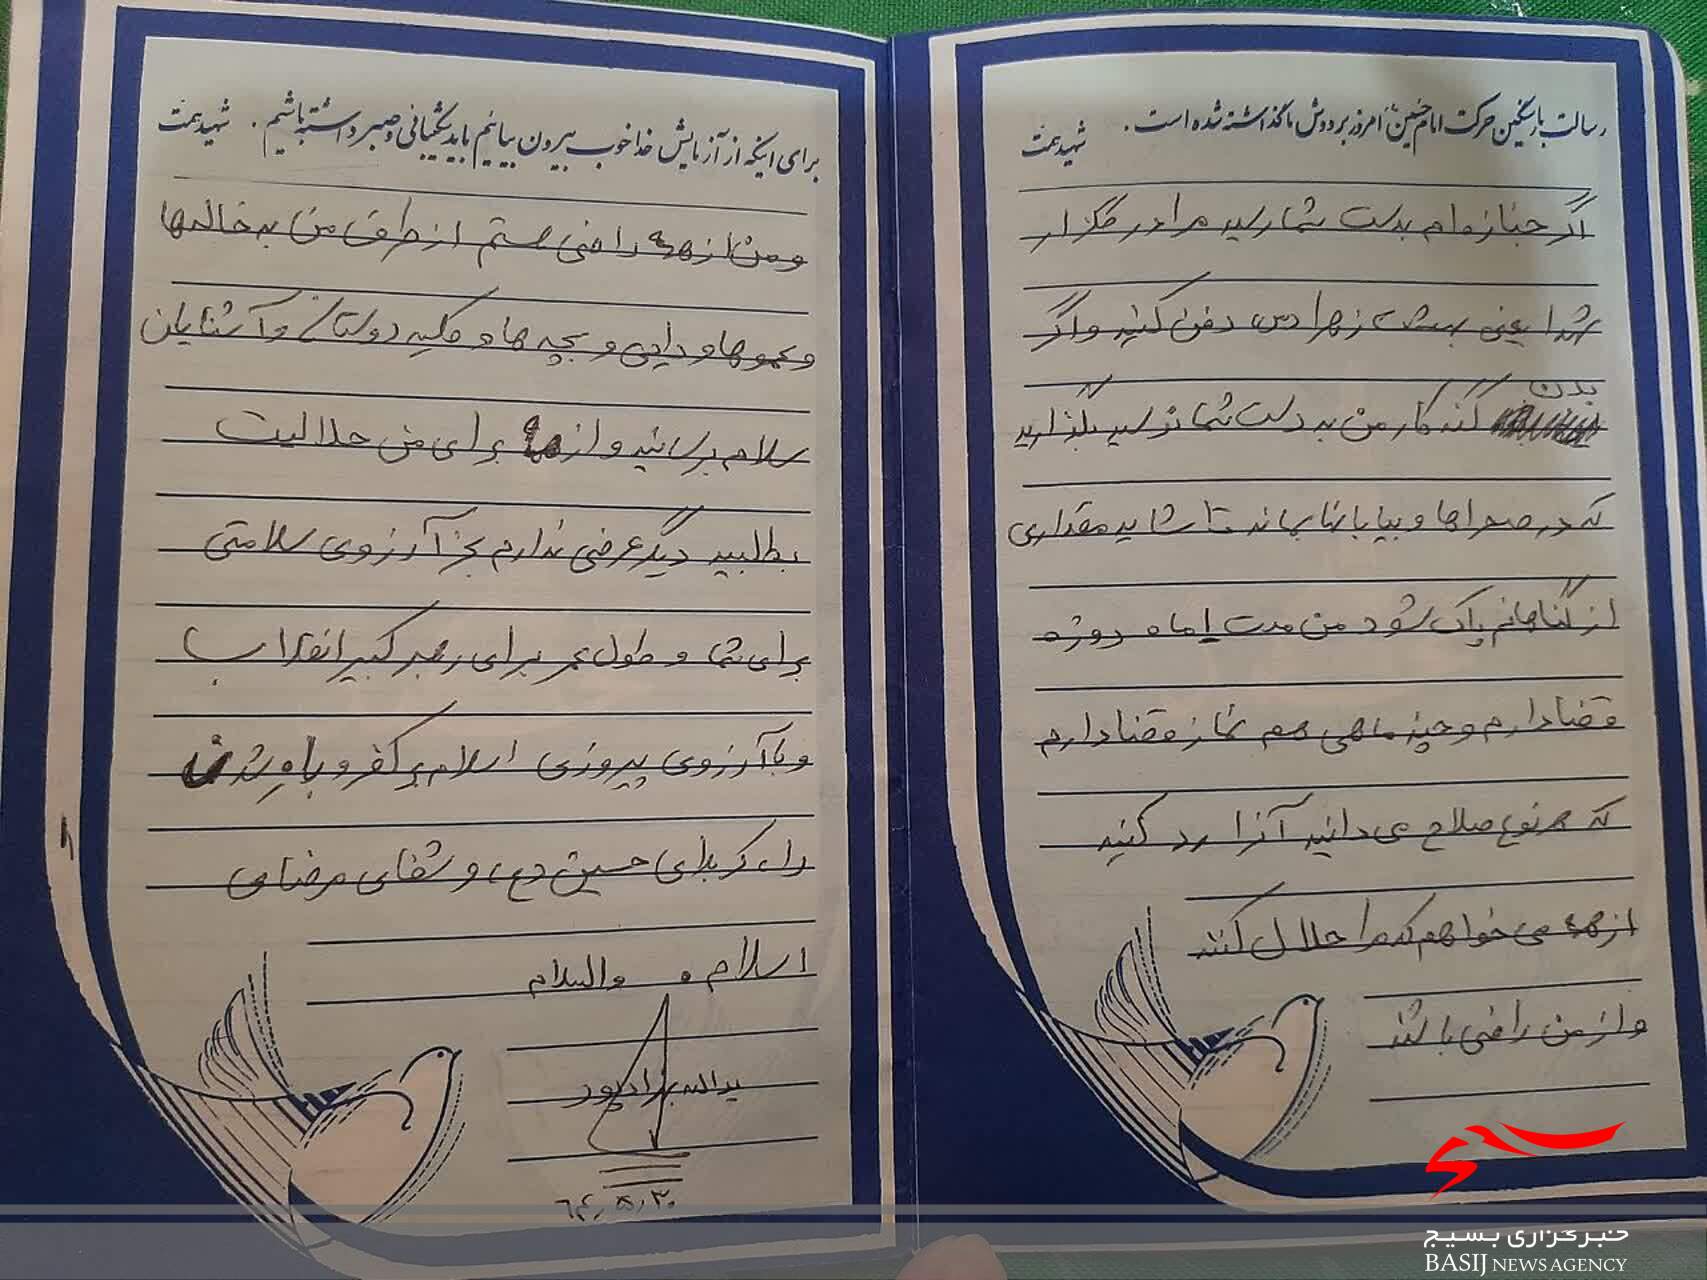 رسالت بار سنگین حرکت امام حسین، امروز بر دوش ما گذاشته شده است.
شهید همت
اگر جنازه ام بدست شما رسید مرا در گلزار
شهدا یعنی بهشت زهرا (س) دفن کنید و اگر
بدن
گنه کار من به دست شما نرسید بگذارید
که در صحراها و بیابانها بماند تا شاید مقداری
از گناهانم پاک شود من مدت ۱ ماه روزه
قضا دارم و چند ماهی هم نماز قضا دارم
که هر نوع صلاح می دانید آنرا رد کنید
از همه می خواهم که مرا حلال کنند
و از من راضی باشند
برای اینکه از آزمایش خدا خوب بیرون بیائیم باید شکیبائی و صبر داشته باشیم.
شهید همت
و من از همه راضی هستم از طرف من به خاله ها
و عموها و دایی و بچه ها و کلیه دوستان و آشنایان
سلام برسانید و از برای من حلالیت
بطلبید دیگر عرضی ندارم بجز آرزوی سلامتی
برای شما و طول عمر برای رهبر کبیر انقلاب
و با آرزوی پیروزی اسلام بر کفر و باز شدن
راه کربلای حسین (ع) و شفای مرضای
اسلام و والسلام
یداله بهزادپور
۶۴٫۵٫۳۰
۸
بسیج
خبرگزاری بسیج
BASIJ NEWS AGENCY